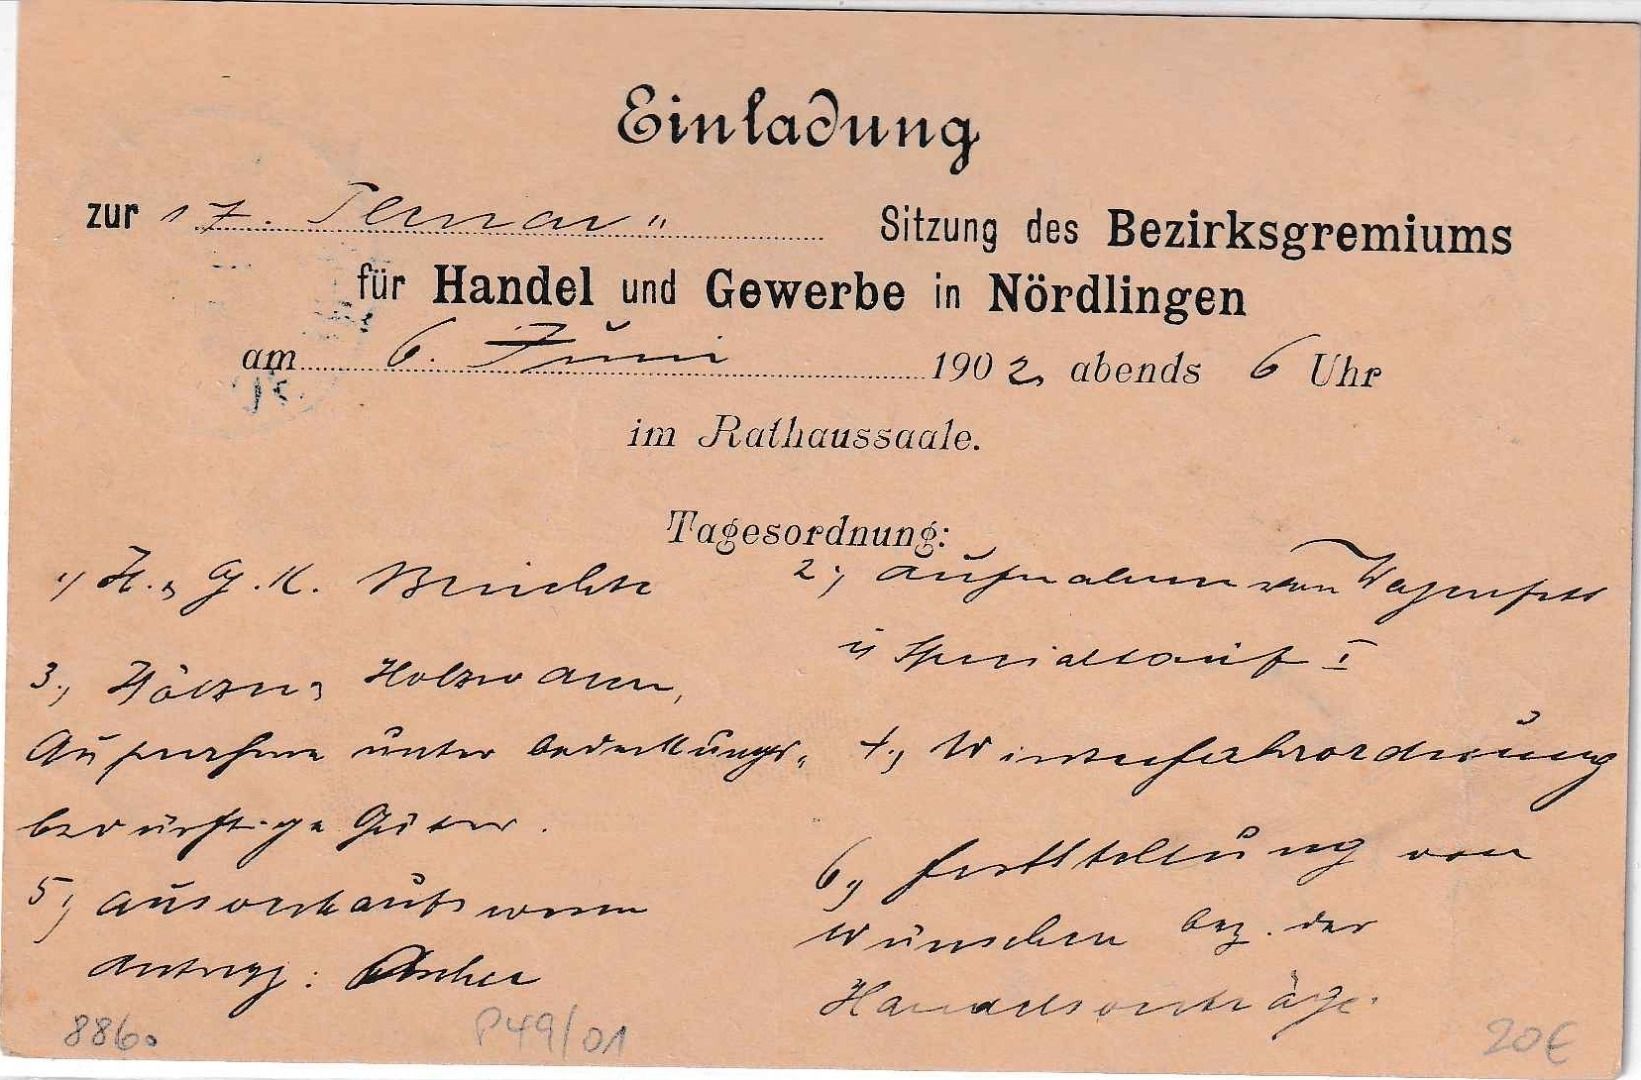 Einladung
zur 17. Plenar" Sitzung des Bezirksgremiums
für Handel und Gewerbe in Nördlingen
am 6. Juni 1902 abends 6 Uhr
im Rathaussaale.
Tagesordnung:
1) H. & G. K. Berichte
2.) Aufnahme von Wagenfett
in Spezialtarif I
3.) Holzwaren,
Aufnahme unter bedeckungs-
bedürftige Güter.
4.) Winterfahrordnung
5.) Ausverkaufswesen
Antrag:
6.) Feststellung von
Wünschen bez. der
Handelsverträge.
886.
P49/01
20€